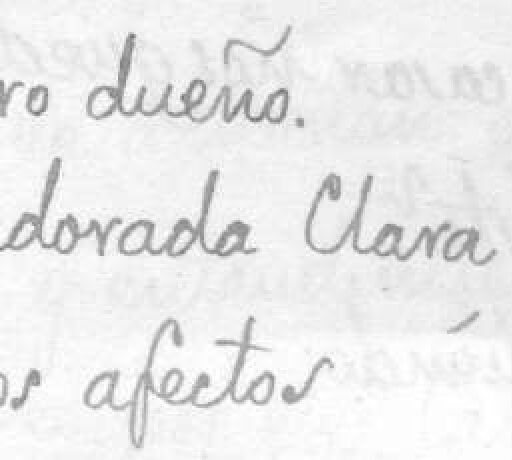 ro dueño.
dorada Clara
os afectos